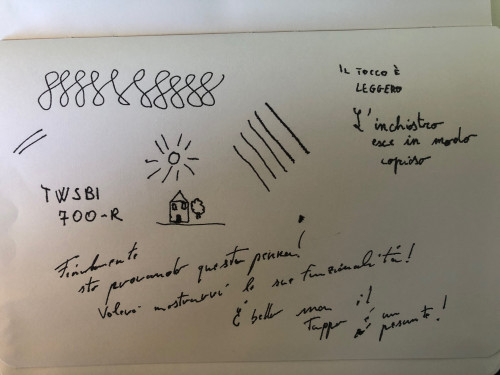 IL TOCCO È
LEGGERO
L'inchiostro
esce in modo
copioso
TWSBI
700-R
Finalmente
sto provando questa penna!
Volevo mostrarvi le sue funzionalità!
È bello ma il
tappo è un
pesante!